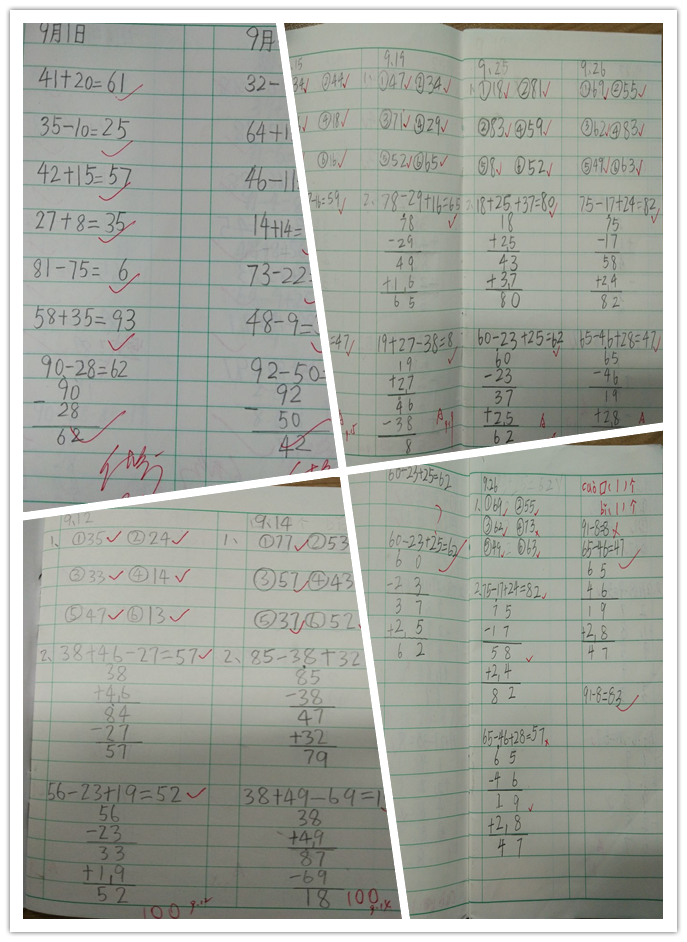 9月1日
41+20=61
35-10=25
42+15=57
27+8=35
81-75=6
58+35=93
90-28=62
90
- 28
62
9月
32-
64+1
46-11
14+14=
73-22=
48-9=
92-50=
92
- 50
42
15
34 ②44
④18
⑥16
=59
=47
9.19
1、①47 ②34
③71 ④29
⑤52 ⑥65
2、78-29+16=65
78
-29
49
+16
65
19+27-38=8
19
+27
46
-38
8
9.25
1、①18 ②81
③83 ④59
⑤8 ⑥52
2、18+25+37=80
18
+25
43
+37
80
60-23+25=62
60
-23
37
+25
62
9.26
①69 ②55
③62 ④83
⑤49 ⑥63
75-17+24=82
75
-17
58
+24
82
65-46+28=47
65
-46
19
+28
9.12
1、①35 ②24
③33 ④14
⑤47 ⑥13
2、38+46-27=57
38
+46
84
-27
57
56-23+19=52
56
-23
33
+19
52
100 9.12
9.14
1、①77 ②53
③57 ④43
⑤37 ⑥52
2、85-38+32
85
-38
47
+32
79
38+49-69=1
38
+49
87
-69
18
100 9.14
60-23+25=62
60-23+25=62
60
-23
37
+25
62
9.26
1、①69 ②55
③62 ④73
⑤49 ⑥63
2.75-17+24=82
75
-17
58
+24
82
65-46+28=57
65
-46
19
+28
47
91-8=8
65-46=47
65
46
19
+28
47
91-8=83